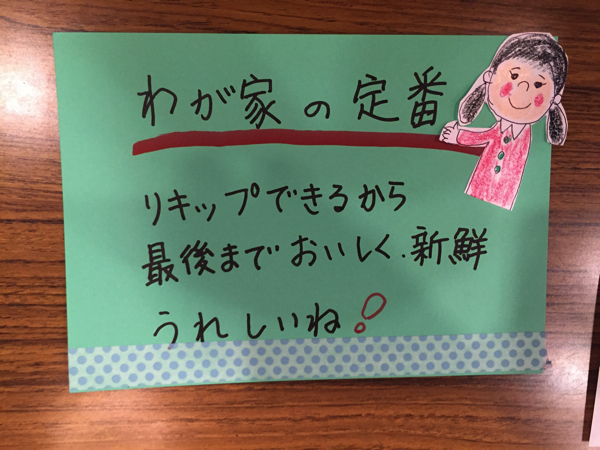 わが家の定番
リキャップできるから
最後までおいしく.新鮮
うれしいね!